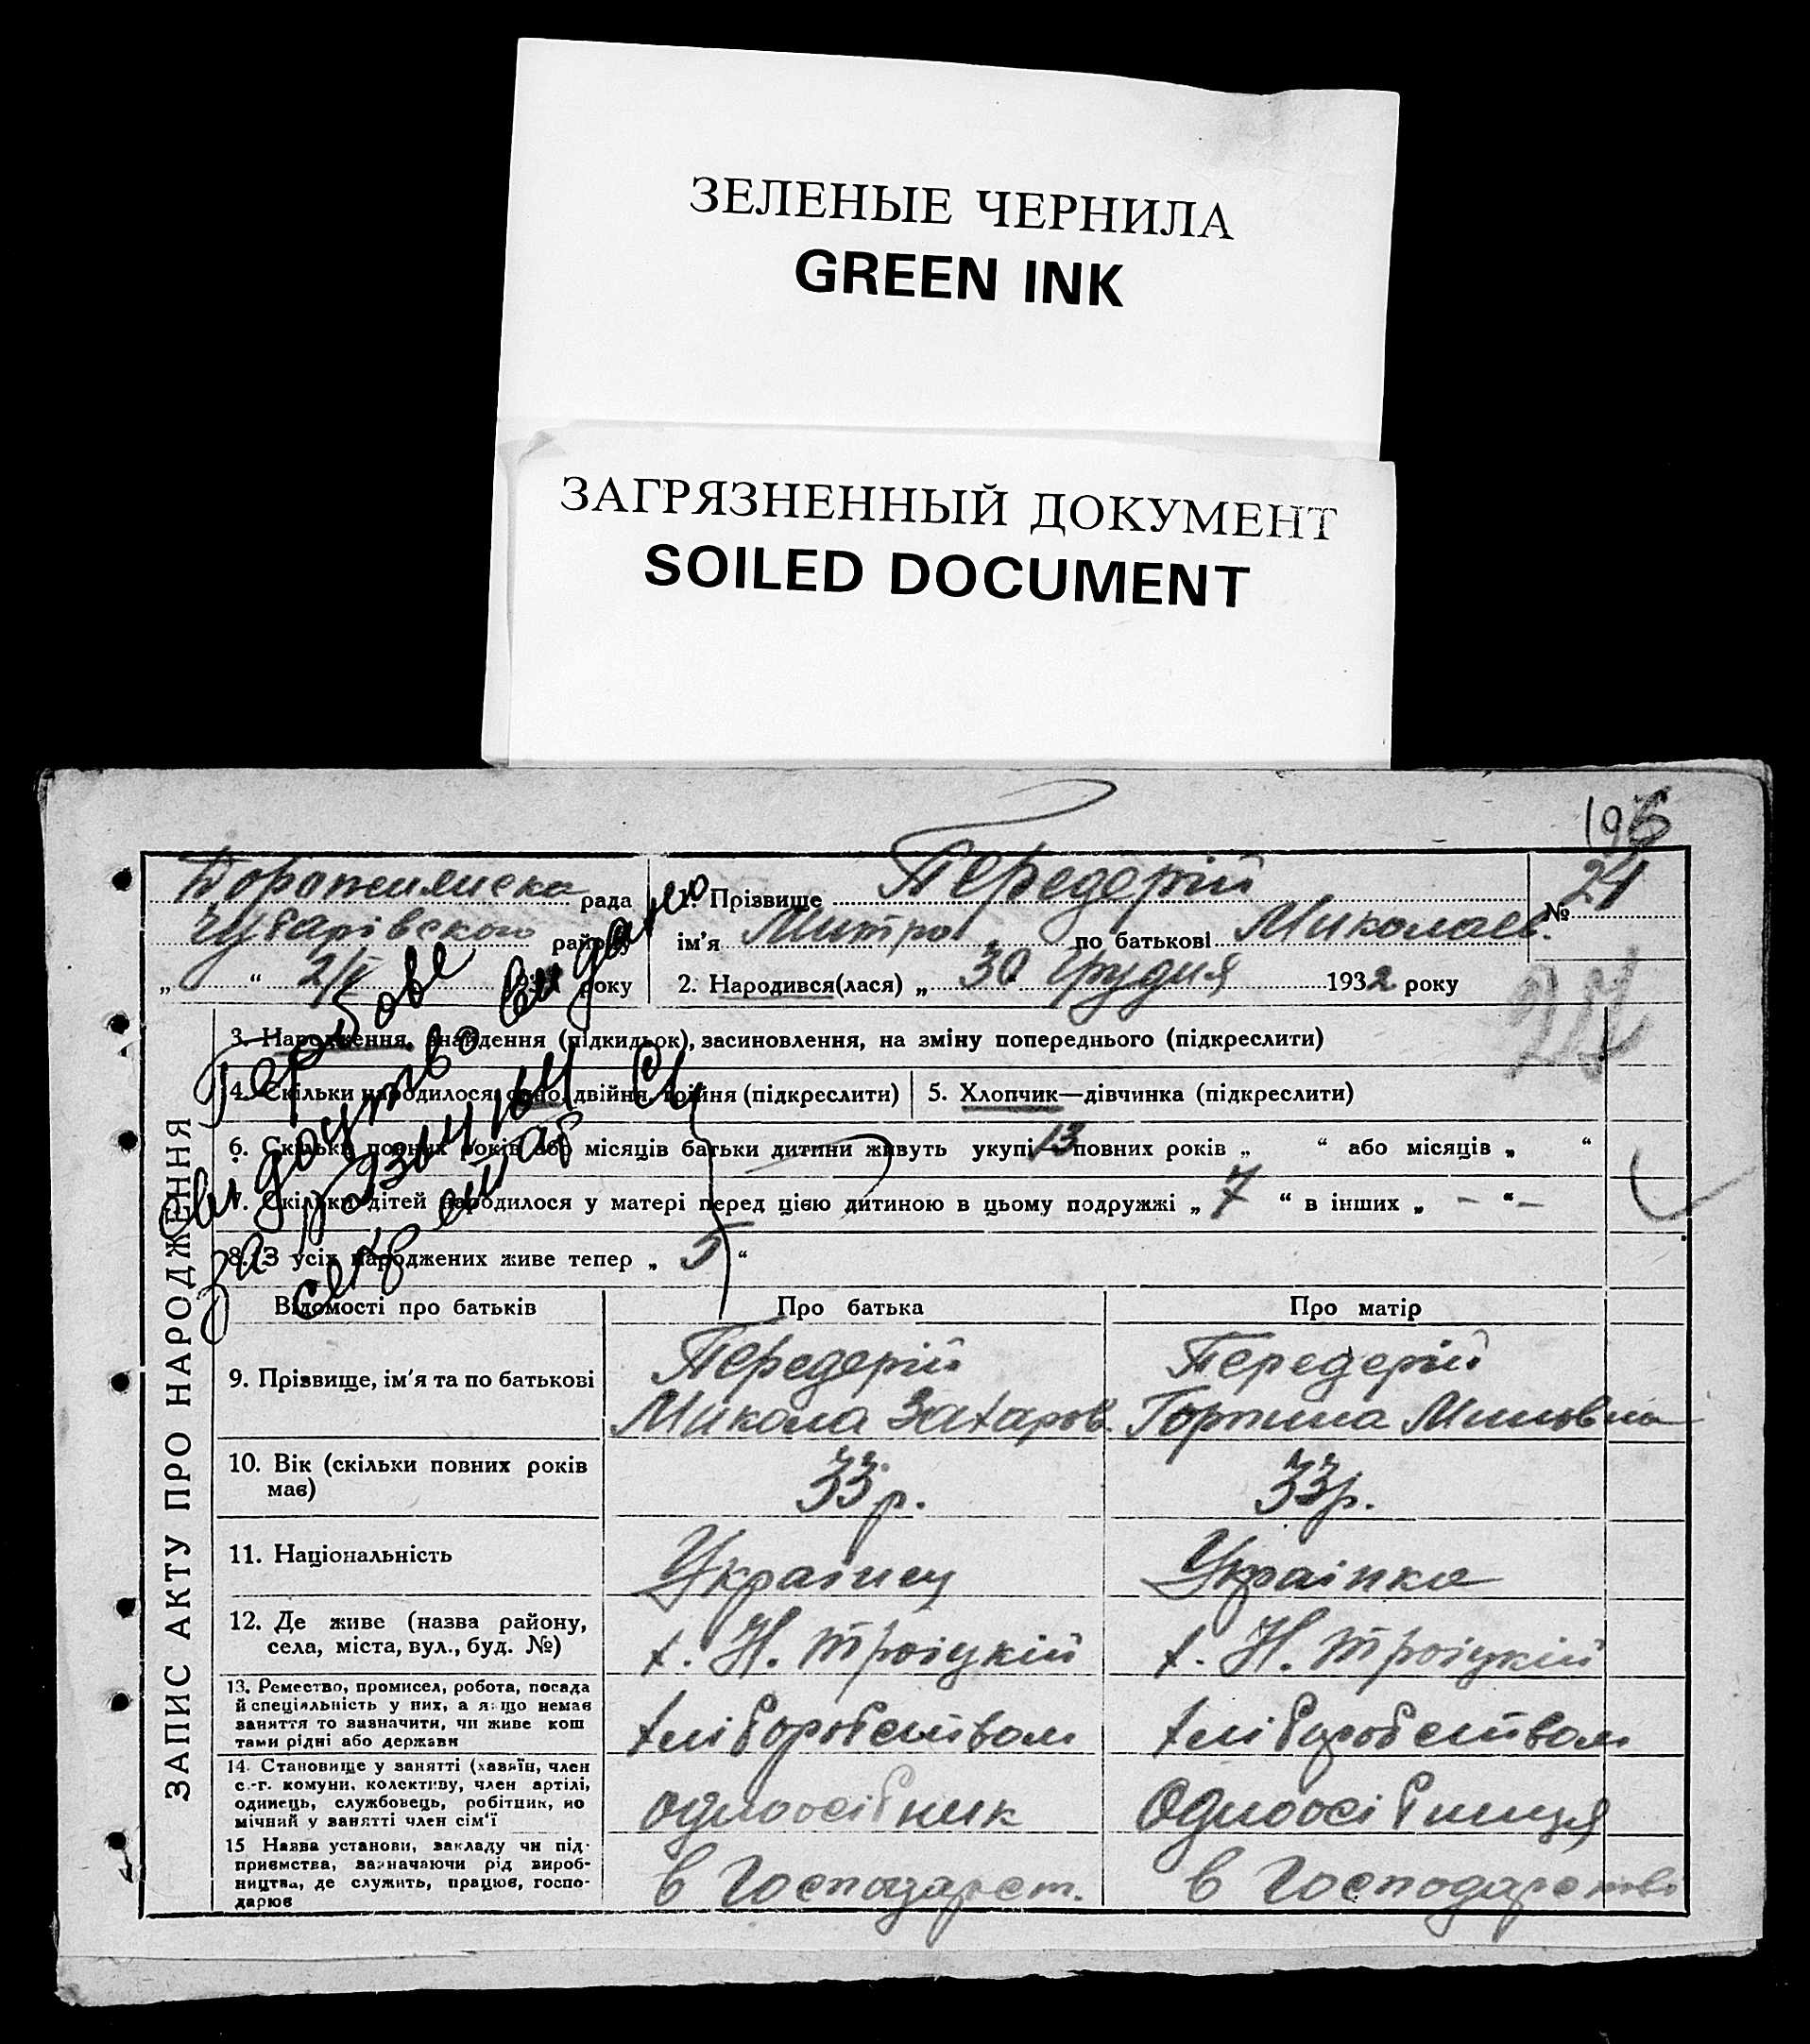 ЗЕЛЕНЫЕ ЧЕРНИЛА
GREEN INK
ЗАГРЯЗНЕННЫЙ ДОКУМЕНТ
SOILED DOCUMENT
196
рада
Чубарівського район
„ “ 2/V 193 року
1. Прізвище Передерій
ім'я Митро по батькові Миколаєв.
№ 24
2. Народився(лася) „ 30 “ Грудня 1932 року
24
Гербове
свидоцтво видано
за
секретар
ЗАПИС АКТУ ПРО НАРОДЖЕННЯ
3. Народження, знайдення (підкидьок), засиновлення, на зміну попереднього (підкреслити)
4. Скільки народилося: одно, двійня, тройня (підкреслити)
5. Хлопчик—дівчинка (підкреслити)
6. Скільки повних років або місяців батьки дитини живуть укупі 13 повних років „ “ або місяців „ “
7. Скільки дітей народилося у матері перед цією дитиною в цьому подружжі „ 7 “ в інших „ – “ –
8. Із усіх народжених живе тепер „ 5 “
Відомості про батьків
Про батька
Про матір
9. Прізвище, ім'я та по батькові
Передерій
Микола Захаров.
Передерій
Горпина
10. Вік (скільки повних років
має)
33 р.
33 р.
11. Національність
Українец
Українка
12. Де живе (назва району,
села, міста, вул., буд. №)
х. Н. Троіцкій
х. Н. Троіцкій
13. Ремество, промисел, робота, посада
й спеціяльність у них, а якщо немає
заняття то зазначити, чи живе кош
тами рідні або держави
хліборобством
хліборобством
14. Становище у занятті (хазяїн, член
с.-г. комуни, колективу, член артілі,
одинець, службовець, робітник, по
мічний у занятті член сім'ї
одноосібник
Одноосібниця
15 Назва установи, закладу чи під-
приємства, вазначаючи рід вироб-
ництва, де служить, працює, госпо-
дарює
в Господарст.
в Господарстві